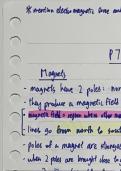 * mention electromagnetic
P7
Magnets
- magnets have 2 poles: nor
- they produce a magnetic field
- magnetic field = region where other mag
- lines go from north to south
- poles of a magnet are stronges
- when 2 poles are brought close to